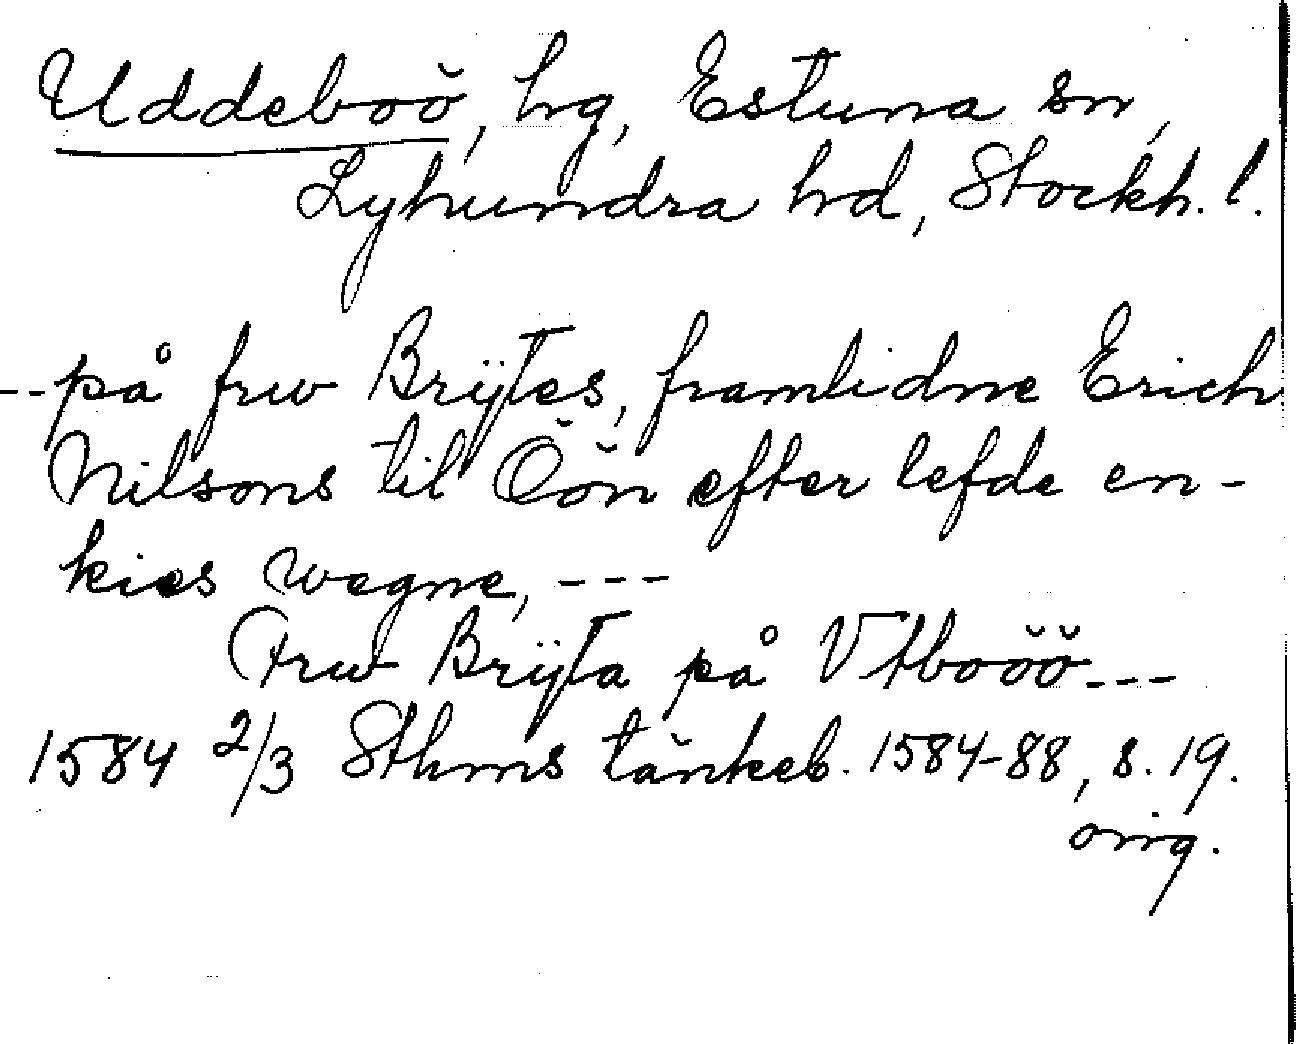 Uddeboö, hg, Estuna sn,
Lyhundra hd, Stockh. l.
--på frw Brÿtes, framlidne Erich
Nilsons til Öön efter lefde en-
kies wegne, ---
Frw Brÿta på Vtboöö---
1584 2/3 Sthms tänkeb. 1584-88, s. 19.
orig.